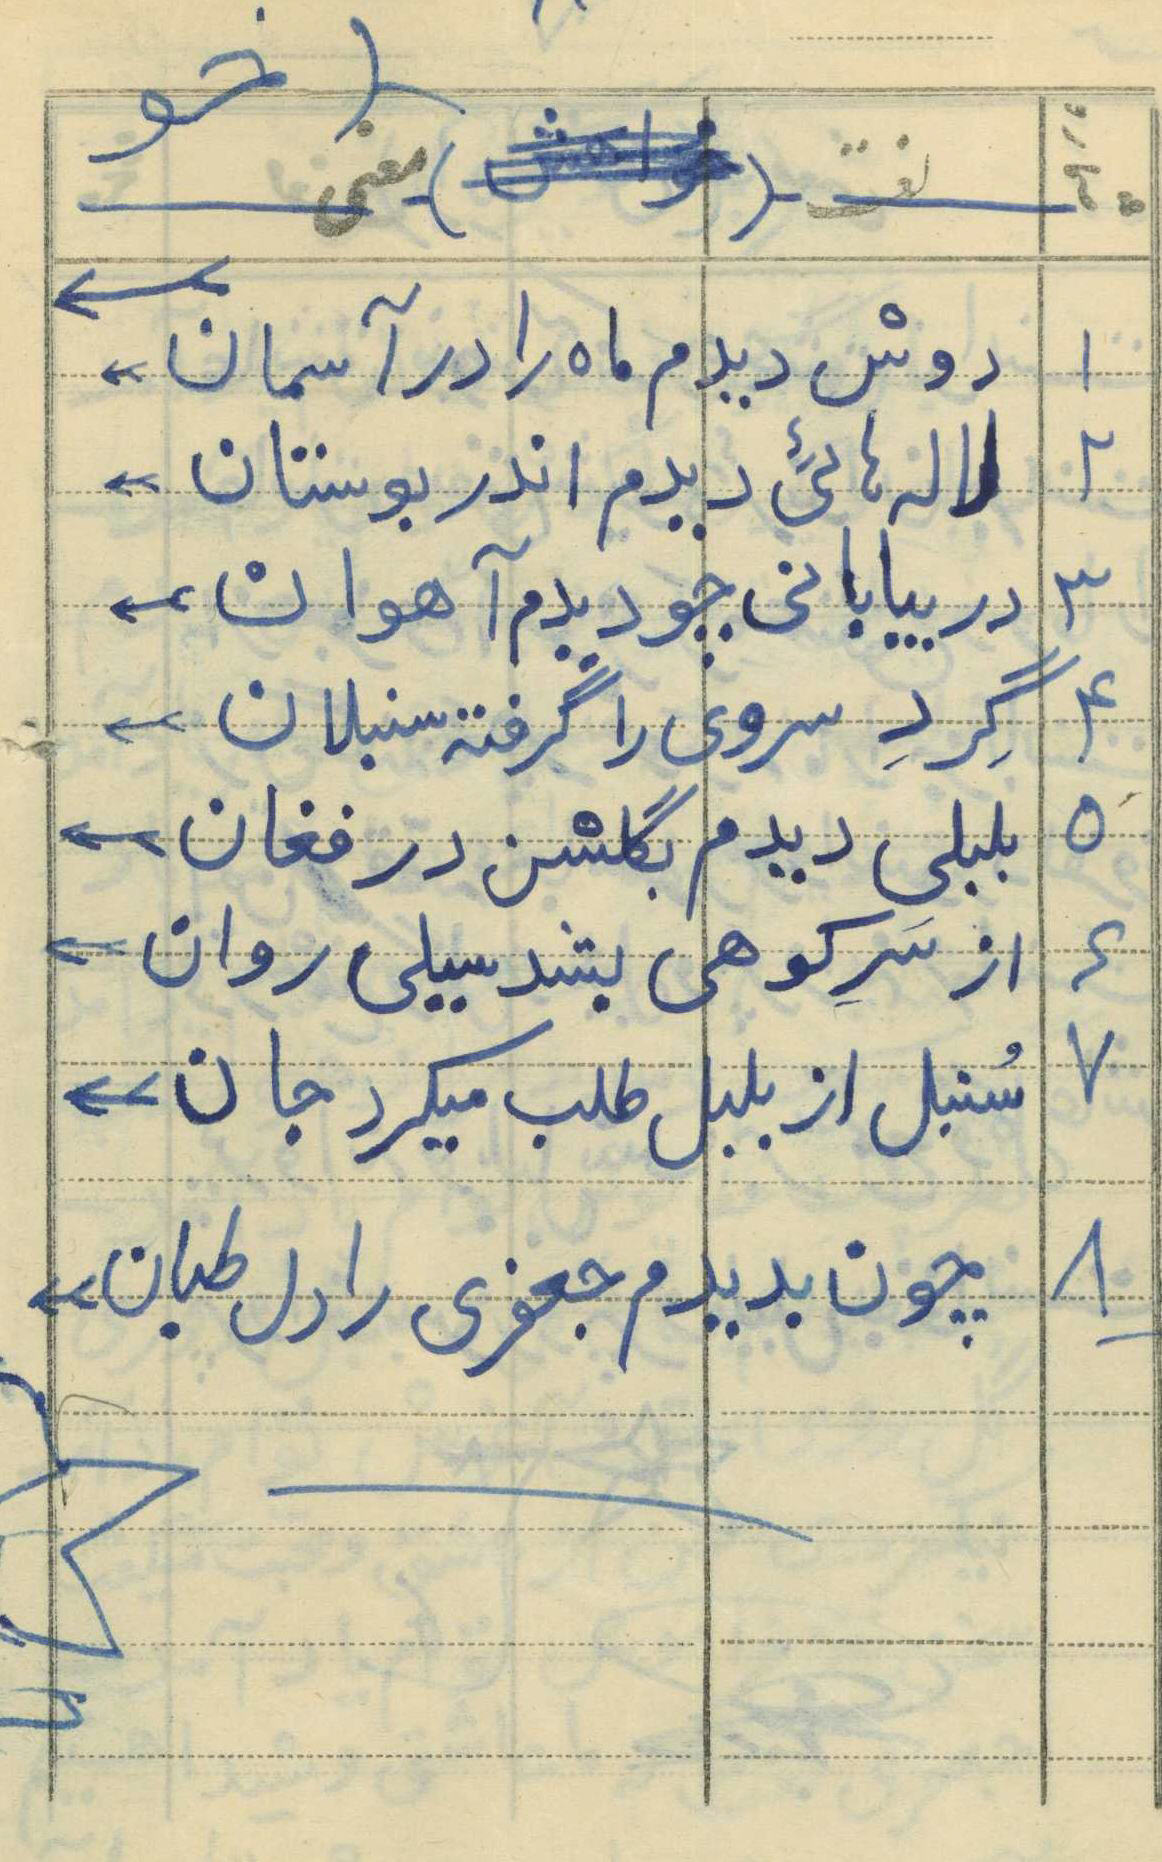 خو
شماره لغت (خواهش) معنی
۱ دوش دیدم ماه را در آسمان ←
۲ لاله هائی دیدم اندر بوستان ←
۳ در بیابانی چو دیدم آهوان ←
۴ گِردِ سروی را گرفته سنبلان ←
۵ بلبلی دیدم بگلشن در فغان ←
۶ از سَرِ کوهی بتند سیلی روان ←
۷ سُنبل از بلبل طلب میکرد جان ←
۸ چون بدیدم جعفری را دل طپان ←